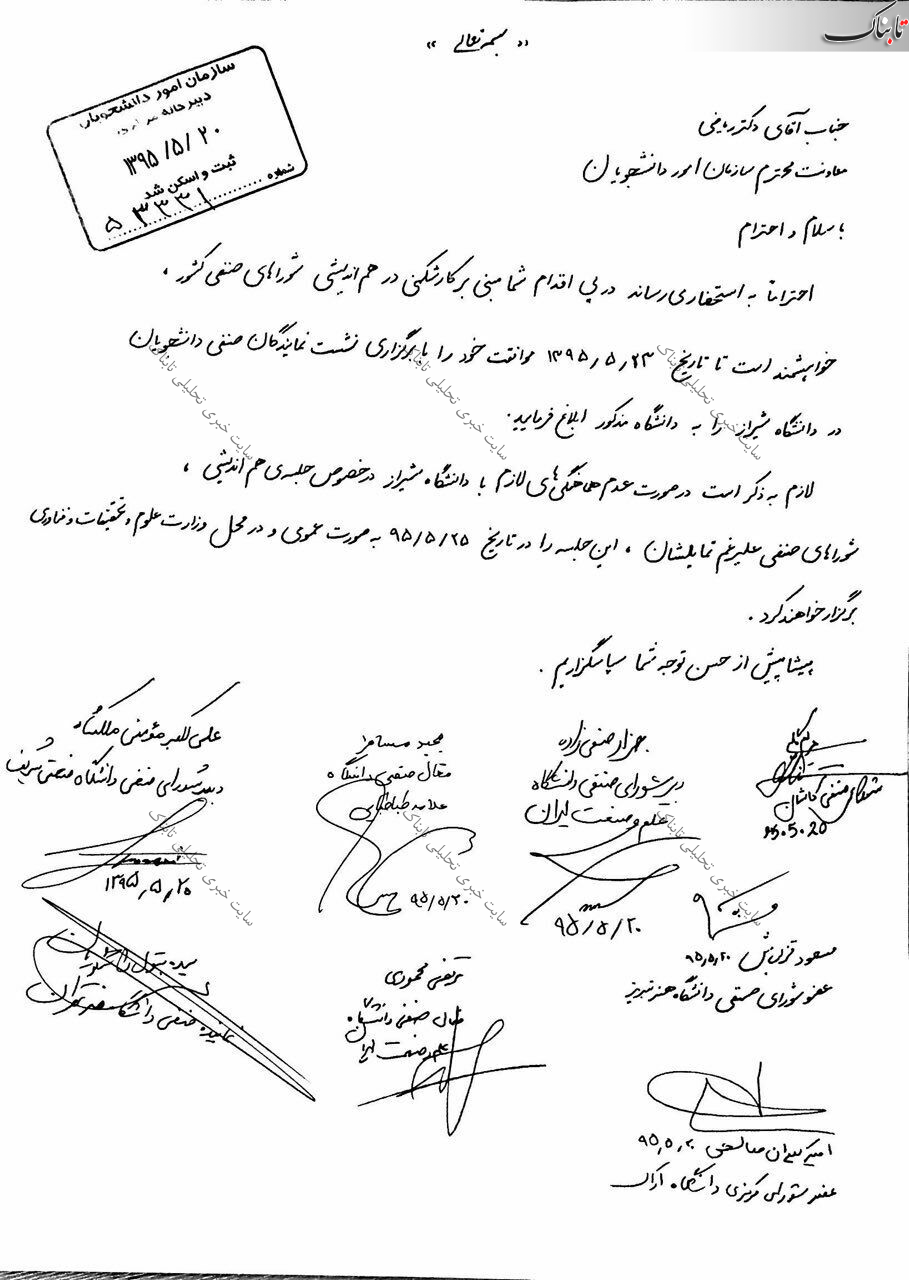 تابناک
« بسمه تعالی »
سازمان امور دانشجویان
دبیرخانه
۱۳۹۵/۵/۲۰
ثبت و اسکن شد
شماره
۵۳۳۳۱
جناب آقای دکتر ریاضی
معاونت محترم سازمان امور دانشجویان
با سلام و احترام
احتراماً به استحضار می‌رساند در پی اقدام شما مبنی بر کارشکنی در هم اندیشی شوراهای صنفی کشور ،
خواهشمند است تا تاریخ ۱۳۹۵٫۵٫۲۳ موافقت خود را با برگزاری نشست نمایندگان صنفی دانشجویان
در دانشگاه شیراز را به دانشگاه مذکور ابلاغ فرمایید.
لازم به ذکر است در صورت عدم هماهنگی‌های لازم با دانشگاه شیراز در خصوص جلسه‌ی هم اندیشی ،
شوراهای صنفی علیرغم تمایلشان ، این جلسه را در تاریخ ۹۵/۵/۲۵ به صورت عمومی و در محل وزارت علوم و تحقیقات و فناوری
برگزار خواهند کرد .
پیشاپیش از حسن توجه شما سپاسگزاریم .
شورای صنفی کاشان
95.5.20
بهزاد صنفی زاده
دبیر شورای صنفی دانشگاه
علم و صنعت ایران
۹۵/۵/۲۰
مجید
فعال صنفی دانشگاه
علامه طباطبایی
۹۵/۵/۲۰
علی اکبر مؤمنی
دبیر شورای صنفی دانشگاه صنعتی شریف
۱۳۹۵٫۵٫۲۰
مسعود قزلباش ۹۵٫۵٫۲۰
عضو شورای صنفی دانشگاه هنر تبریز
مرتضی محموری
فعال صنفی دانشگاه
علم و صنعت ایران
سیده بتول
نماینده صنفی دانشگاه هنر تهران
امیر صالحی ۹۵٫۵٫۲۰
عضو شورای مرکزی دانشگاه اراک
سایت خبری تحلیلی تابناک
سایت خبری تحلیلی تابناک
سایت خبری تحلیلی تابناک
سایت خبری تحلیلی تابناک
سایت خبری تحلیلی تابناک
سایت خبری تحلیلی تابناک